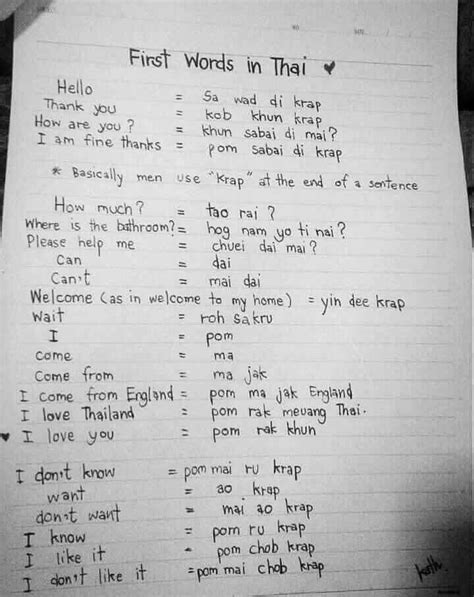 First Words in Thai ♥
Hello = Sa wad di krap
Thank you = kob khun krap
How are you ? = khun sabai di mai?
I am fine thanks = pom sabai di krap
* Basically men use "krap" at the end of a sentence
How much? = tao rai ?
Where is the bathroom? = hog nam yo ti nai ?
Please help me = chuei dai mai ?
Can = dai
Can't = mai dai
Welcome (as in welcome to my home) = yin dee krap
Wait = roh sakru
I = pom
come = ma
Come from = ma jak
I come from England = pom ma jak England
I love Thailand = pom rak meuang Thai.
♥ I love you = pom rak khun
I don't know = pom mai ru krap
want = ao krap
don't want = mai ao krap
I know = pom ru krap
I like it = pom chob krap
I don't like it = pom mai chob krap